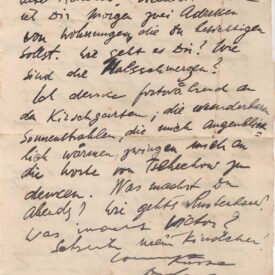 ist Dir Morgen zwei Adressen
von Wohnungen, die Du besichtigen
sollst. Wie geht es Dir? Wie
sind die Halsschmerzen?
Ich denke fortwährend an
den Kirschgarten; die wunderbaren
Sonnenstrahlen, die mich augenblick-
lich wärmen, zwingen mich an
die Worte von Tschechow zu
denken. Was machst Du
Abends? Wie gehts
Was macht Victor?
Schreib mein Kindchen,